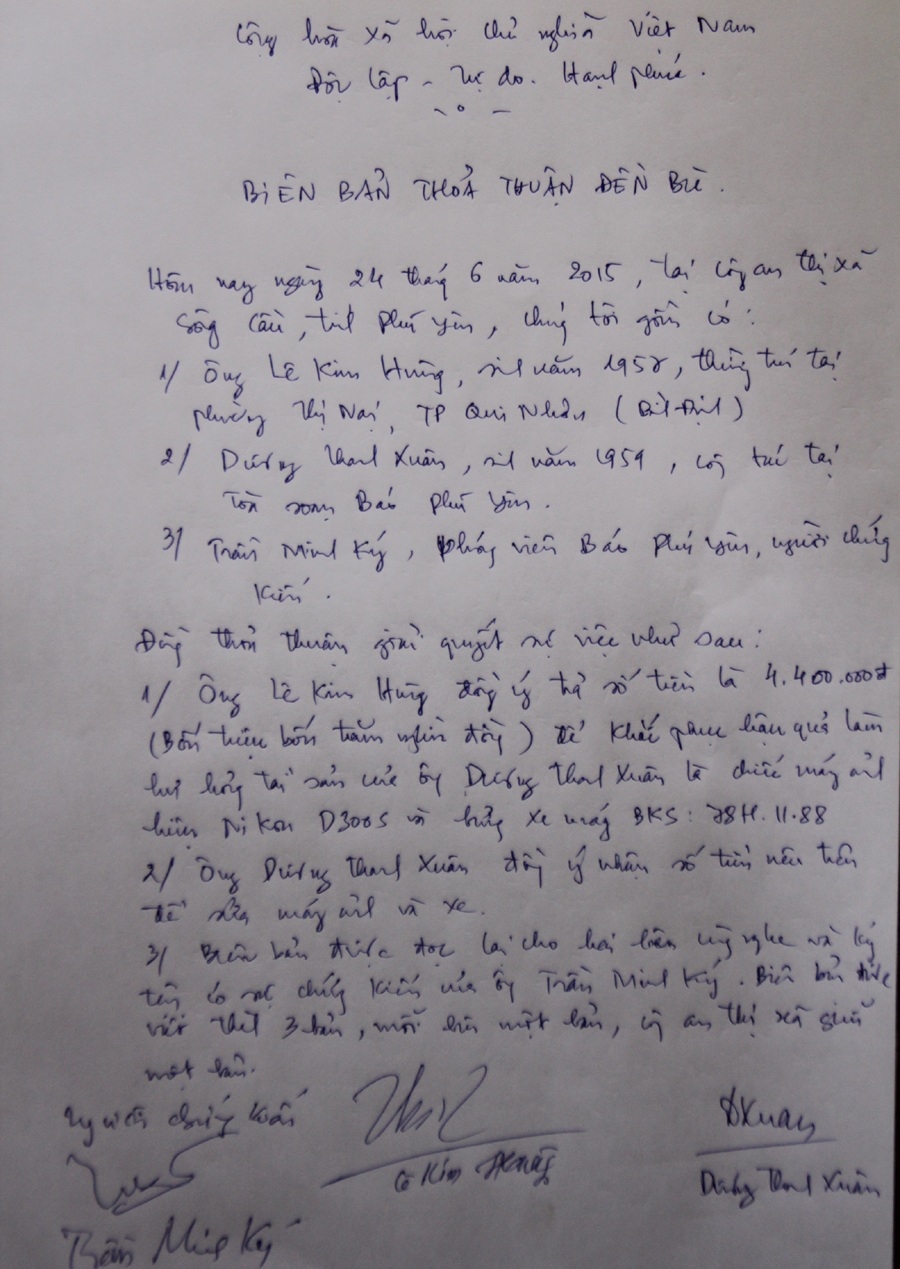 Cộng hòa xã hội chủ nghĩa Việt Nam
Độc lập - Tự do. Hạnh phúc.
BIÊN BẢN THOẢ THUẬN ĐỀN BÙ.
Hôm nay ngày 24 tháng 6 năm 2015, tại công an thị xã
Sông Cầu, tỉnh Phú Yên, chúng tôi gồm có:
1/ Ông Lê Kim Hùng, sinh năm 1958, thường trú tại
phường Thị Nại, TP Qui Nhơn (Bình Định)
2/ Dương Thanh Xuân, sinh năm 1959, công tác tại
Tòa soạn Báo Phú Yên.
3/ Trần Minh Ký, Phóng viên Báo Phú Yên, người chứng
kiến.
Đồng thỏa thuận giải quyết sự việc như sau:
1/ Ông Lê Kim Hùng đồng ý trả số tiền là 4.400.000đ
(Bốn triệu bốn trăm nghìn đồng) để khắc phục hậu quả làm
hư hỏng tài sản của ông Dương Thanh Xuân là chiếc máy ảnh
hiệu Nikon D300S và hỏng xe máy BKS: 78H.11.88
2/ Ông Dương Thanh Xuân đồng ý nhận số tiền nêu trên
để sửa máy ảnh và xe.
3/ Biên bản được đọc lại cho hai bên cùng nghe và ký
tên có sự chứng kiến của ông Trần Minh Ký. Biên bản được
viết thành 3 bản, mỗi bên một bản, công an thị xã giữ
một bản.
Người chứng kiến
ĐXuan
Lê Kim Hùng
Dương Thanh Xuân
Trần Minh Ký